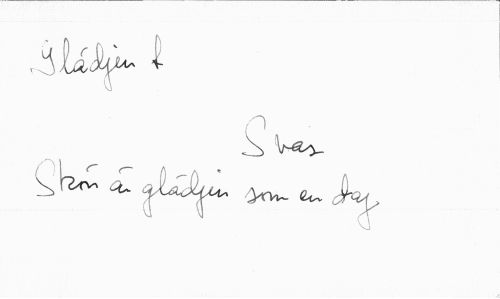 Glädjen f
Svar
Skön är glädjen som en dag